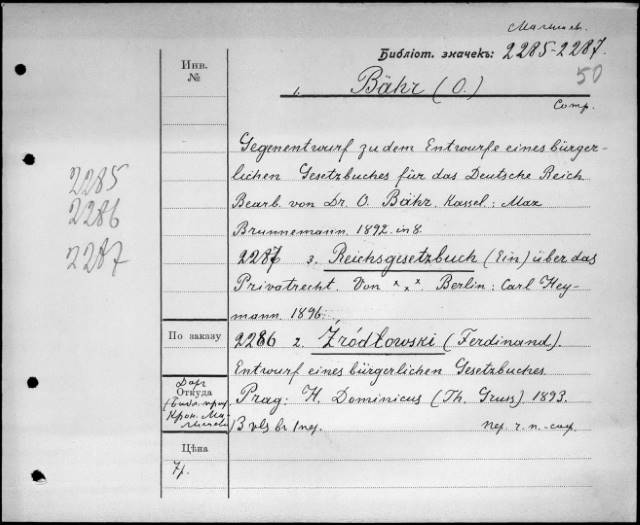 Малышев.
Библіот. значекъ: 2285-2287.
50
Инв.
№
1. Bähr (O.)
Comp.
Gegenentwurf zu dem Entwurfe eines bürger-
lichen Gesetzbuches für das Deutsche Reich
Bearb. von Dr. O. Bähr. Kassel: Max
Brunnemann. 1892. in 8.
2285
2286
2287
2287 3. Reichsgesetzbuch (Ein) über das
Privatrecht. Von x x x Berlin: Carl Hey-
mann. 1896.
По заказу
2286 2. Źródłowski (Ferdinand).
Entwurf eines bürgerlichen Gesetzbuches.
Даръ
Откуда
Крон. Ма-
лышева
Prag: H. Dominicus (Th. Gruss). 1893.
3 vls br. 1 пер.
пер. г. п.-сах.
Цѣна
7р.